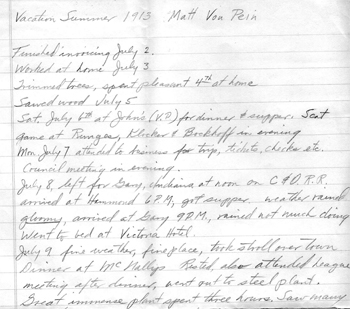 Vacation Summer 1913 Matt Von Pein
Finished invoicing July 2.
Worked at home July 3
Trimmed trees, spent pleasant 4th at home
Sawed wood July 5
Sat. July 6th at John's (V.P.) for dinner & supper. Scat
game at Runges, Klicker & Brockhoff in evening
Mon. July 7 attended to business for trip, tickets, checks etc.
Council meeting in evening.
July 8, left for Gary, Indiana at noon on C & O. R.R.
arrived at Hammond 6 P.M, got supper. weather rained
gloomy, arrived at Gary 9 P.M., rained not much doing
Went to bed at Victoria Hotel.
July 9 fine weather, fine place, took stroll over town
Dinner at McNallys. Rested also attended League
meeting after dinner, went out to steel plant.
Great immense plant spent three hours. Saw many